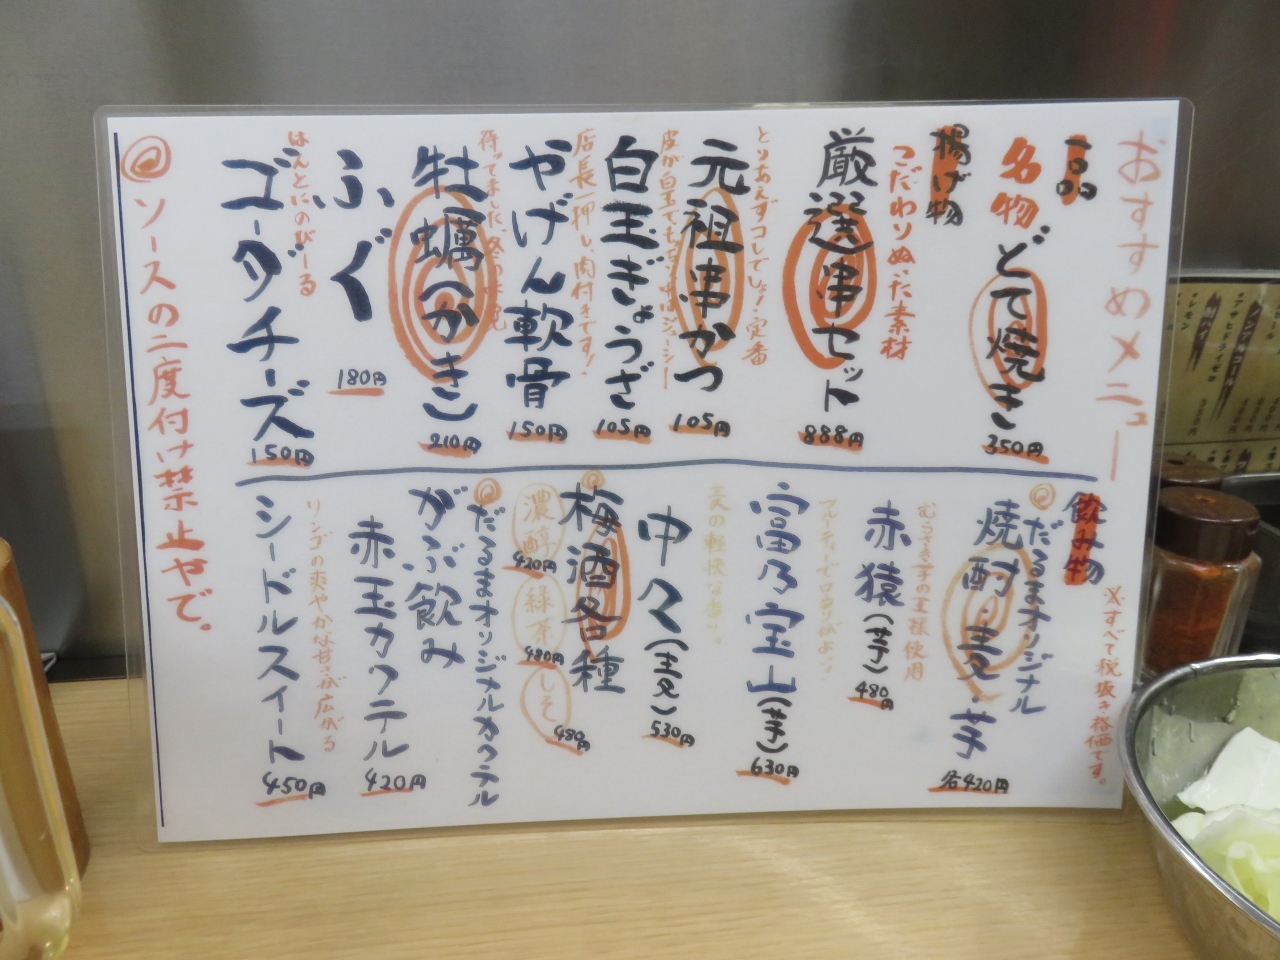 おすすめメニュー
一品
名物
どて焼き
350円
揚げ物
こだわりぬいた素材
厳選串セット
888円
とりあえずコレでしょ！定番
元祖串かつ
105円
白玉ぎょうざ
105円
店長一押し肉付きです！
やげん軟骨
150円
待ってました、冬の
牡蠣（かき）
210円
ふぐ
180円
ほんとにのびーる
ゴーダチーズ
150円
飲み物
※すべて税抜き価格です。
だるまオリジナル
焼酎・麦・芋
各420円
むらさき芋の王様使用
赤猿（芋）
480円
富乃宝山（芋）
630円
中々（麦）
530円
梅酒各種
濃醇
420円
緑茶
480円
しそ
480円
だるまオリジナルカクテル
がぶ飲み
赤玉カクテル
420円
リンゴの爽やかな甘さが広がる
シードルスイート
450円
ソースの二度付け禁止やで。